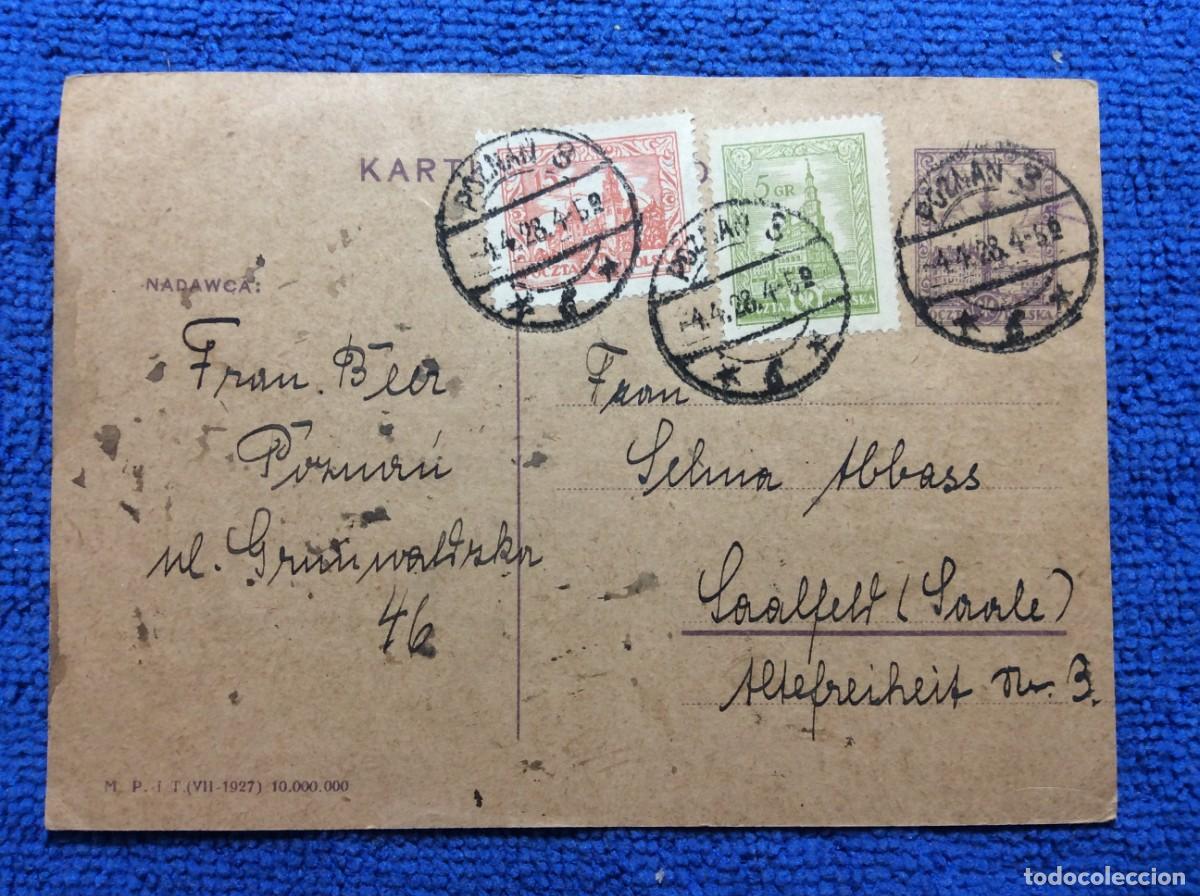 KART
POZNAŃ 3
-4.4.28.4-5
POCZTA POLSKA
5 GR
POZNAŃ 3
-4.4.28.4-5
POCZTA POLSKA
POZNAŃ 3
-4.4.28.4-5
POCZTA POLSKA
NADAWCA:
Frau. Beer
Poznań
ul. Grunwaldzka
46
Frau
Selma Abbass
Saalfeld (Saale)
Altefreiheit Nr. 3.
M. P. I T. (VII-1927) 10.000.000
todocoleccion